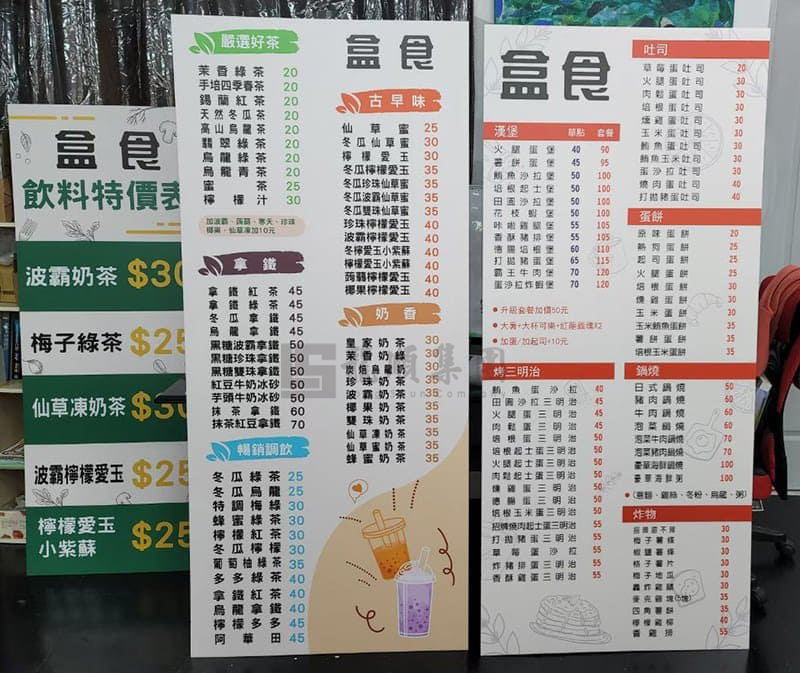 盒食
飲料特價表
波霸奶茶 $30
梅子綠茶 $25
仙草凍奶茶 $30
波霸檸檬愛玉 $25
檸檬愛玉
小紫蘇 $25
嚴選好茶
茉香綠茶 20
手培四季春茶 20
錫蘭紅茶 20
天然冬瓜茶 20
高山烏龍茶 20
翡翠綠茶 20
烏龍綠茶 20
烏龍青茶 20
蜜茶 25
檸檬汁 30
加波霸、蒟蒻、寒天、珍珠
椰果、仙草凍加10元
拿鐵
拿鐵紅茶 45
拿鐵綠茶 45
冬瓜拿鐵 45
烏龍拿鐵 45
黑糖波霸拿鐵 50
黑糖珍珠拿鐵 50
黑糖雙珠拿鐵 50
紅豆牛奶冰砂 50
芋頭牛奶冰砂 50
抹茶拿鐵 60
抹茶紅豆拿鐵 70
暢銷調飲
冬瓜綠茶 25
冬瓜烏龍 25
特調梅綠 30
蜂蜜綠茶 30
檸檬紅茶 30
冬瓜檸檬 30
葡萄柚綠茶 35
多多綠茶 40
拿鐵紅茶 40
烏龍拿鐵 40
檸檬多多 45
阿華田 45
盒食
古早味
仙草蜜 25
冬瓜仙草蜜 30
檸檬愛玉 30
冬瓜檸檬愛玉 35
冬瓜珍珠仙草蜜 35
冬瓜波霸仙草蜜 35
冬瓜雙珠仙草蜜 35
珍珠檸檬愛玉 40
波霸檸檬愛玉 40
冬檸愛玉小紫蘇 40
檸檬愛玉小紫蘇 40
蒟蒻檸檬愛玉 40
椰果檸檬愛玉 40
奶香
皇家奶茶 30
茉香奶綠 30
炭焙烏龍奶 30
珍珠奶茶 35
波霸奶茶 35
椰果奶茶 35
雙珠奶茶 35
仙草凍奶茶 35
仙草蜜奶茶 35
蜂蜜奶茶 35
盒食
漢堡 單點 套餐
火腿蛋堡 40 90
薯餅蛋堡 45 95
鮪魚沙拉堡 50 100
培根起士堡 50 100
田園沙拉堡 50 100
花枝蝦堡 50 100
咔啦雞腿堡 55 105
香酥豬排堡 55 105
德腸培根堡 60 110
打拋豬蛋堡 65 115
霸王牛肉堡 70 120
蛋沙拉炸蝦堡 70 120
●升級套餐加價50元
●大薯+大杯可樂+紅龍雞塊X2
●加蛋/加起司+10元
烤三明治
鮪魚蛋沙拉 40
田園沙拉三明治 45
火腿蛋三明治 45
肉鬆蛋三明治 45
培根蛋三明治 50
鮪魚起士蛋三明治 50
培根起士蛋三明治 50
肉鬆起士蛋三明治 50
燻雞蛋三明治 50
德腸蛋三明治 50
培根玉米蛋三明治 50
招牌燒肉起士蛋三明治 55
打拋豬蛋三明治 55
草莓蛋沙拉 55
炸豬排蛋三明治 55
香酥雞蛋三明治 55
吐司
草莓蛋吐司 20
火腿蛋吐司 30
肉鬆蛋吐司 30
培根蛋吐司 30
燻雞蛋吐司 30
玉米蛋吐司 30
鮪魚蛋吐司 30
鮪魚玉米吐司 30
蛋沙拉吐司 30
燒肉蛋吐司 40
打拋豬蛋吐司 40
蛋餅
原味蛋餅 20
熱狗蛋餅 25
起司蛋餅 25
火腿蛋餅 25
培根蛋餅 30
燻雞蛋餅 30
玉米蛋餅 30
玉米鮪魚蛋餅 30
薯餅蛋餅 30
培根玉米蛋餅 35
鍋燒
日式鍋燒 50
豬肉鍋燒 60
牛肉鍋燒 60
泡菜鍋燒 60
泡菜牛肉鍋燒 70
泡菜豬肉鍋燒 70
豪華海鮮鍋燒 100
豪華海鮮粥 100
●(意麵、雞絲、冬粉、烏龍、粥)
炸物
30
梅子薯條 30
椒鹽薯條 30
格子薯片 30
梅子地瓜 30
轟炸雞腿 30
麥克雞塊(5塊) 30
四角薯餅 30
檸檬雞柳 40
香雞排 55